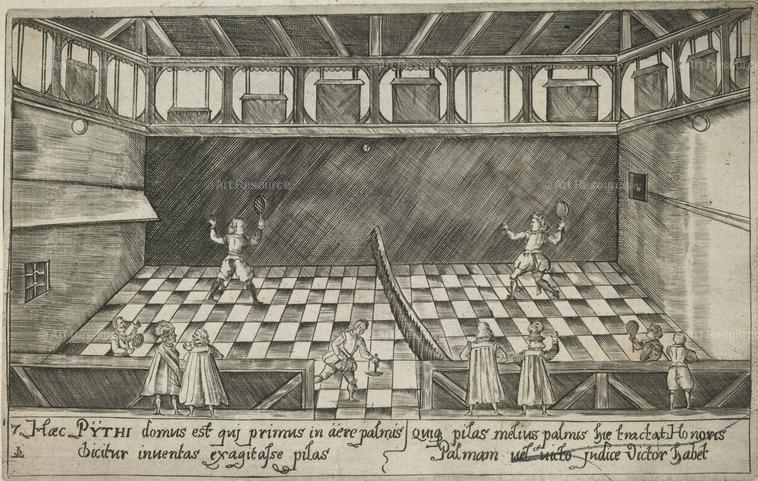 7. Hæc PŸTHI domus est quj primus in äëre palmis
Dicitur inventas exagitasse pilas
Quiq pilas melius palmis hic tractat Honoris
Palmam judice Victor habet
© Art Resource
© Art Resource
© Art Resource